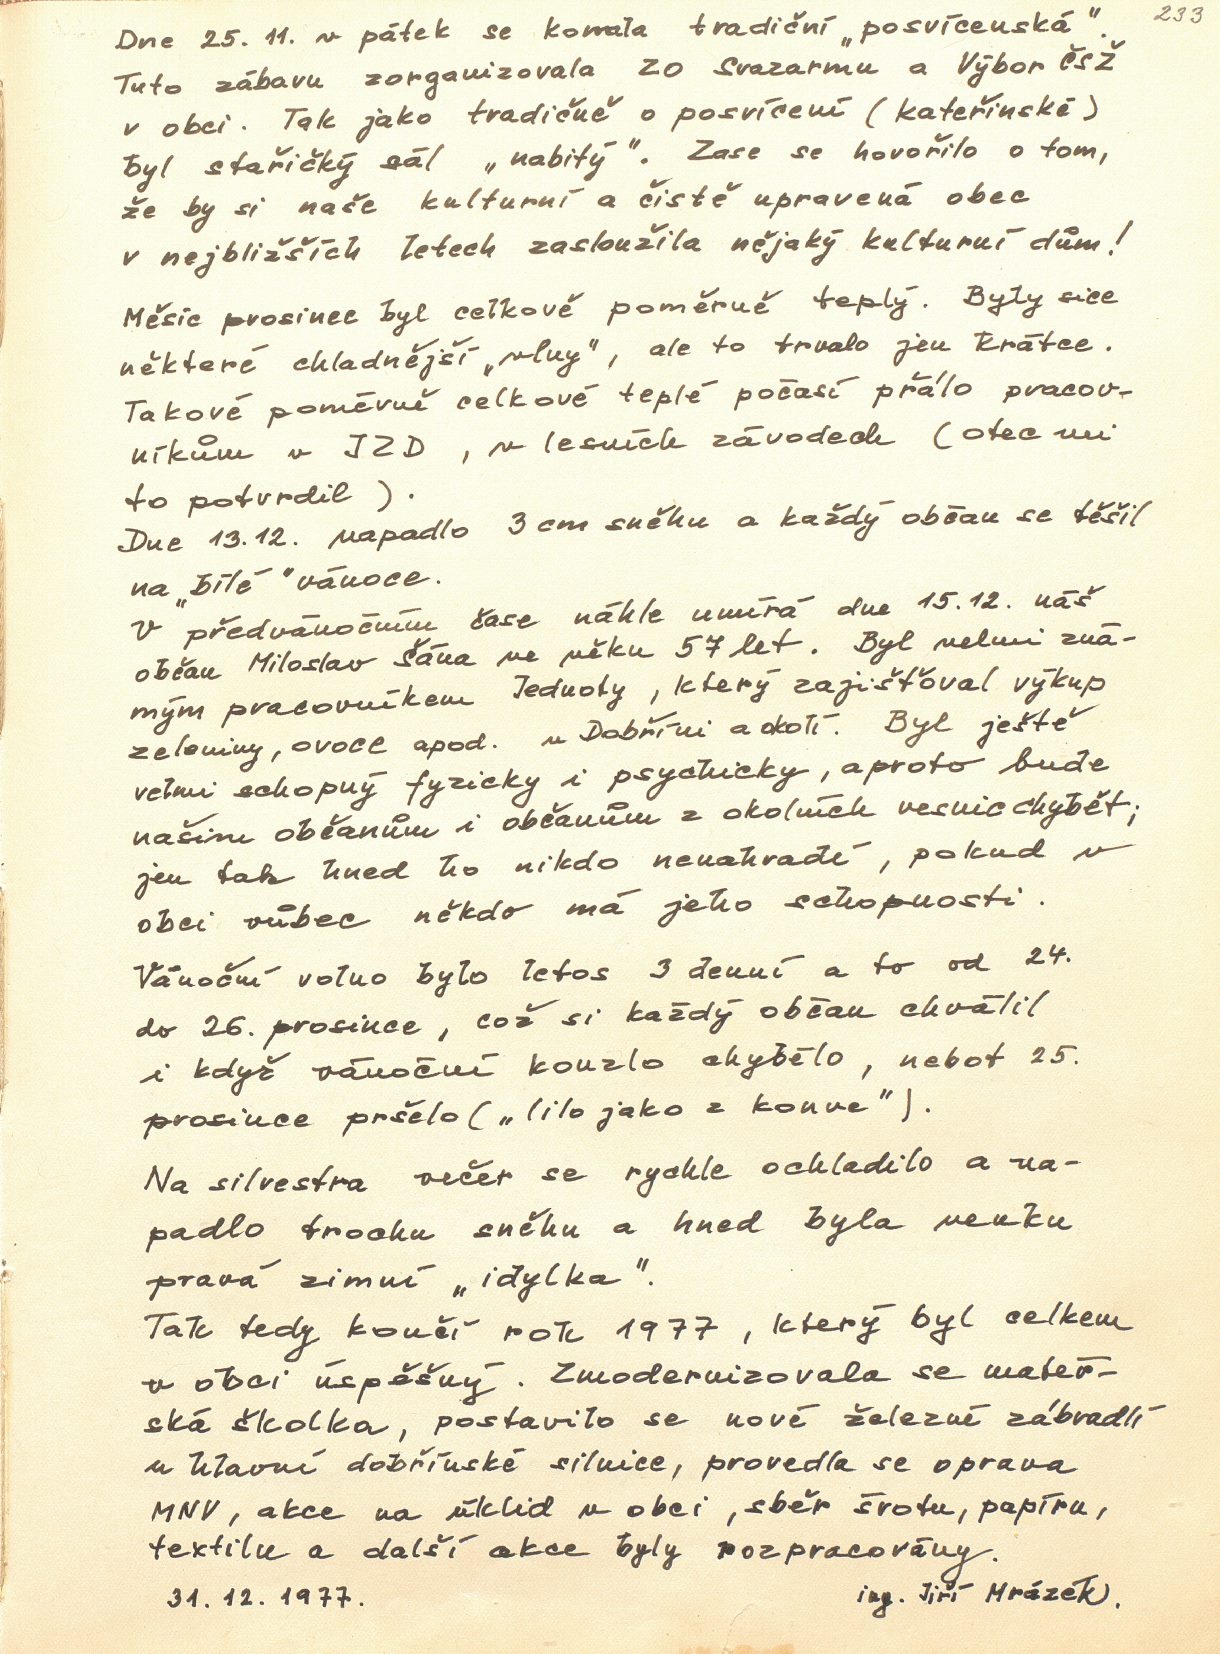 233
Dne 25. 11. v pátek se konala tradiční „posvícenská".
Tuto zábavu zorganizovala ZO Svazarmu a Výbor ČSŽ
v obci. Tak jako tradičně o posvícení (kateřinské)
byl stařičký sál „nabitý". Zase se hovořilo o tom,
že by si naše kulturní a čistě upravená obec
v nejbližších letech zasloužila nějaký kulturní dům!
Měsíc prosinec byl celkově poměrně teplý. Byly sice
některé chladnější „vlny", ale to trvalo jen krátce.
Takové poměrně celkové teplé počasí přálo pracov-
níkům v JZD, v lesních závodech (otec mi
to potvrdil).
Dne 13.12. napadlo 3 cm sněhu a každý občan se těšil
na „bílé" vánoce.
V předvánočním čase náhle umírá dne 15.12. náš
občan Miloslav Šána ve věku 57 let. Byl velmi zná-
mým pracovníkem Jednoty, který zajišťoval výkup
zeleniny, ovoce apod. v Dobříni a okolí. Byl ještě
velmi schopný fyzicky i psychicky, a proto bude
našim občanům i občanům z okolních vesnic chybět;
jen tak hned ho nikdo nenahradí, pokud v
obci vůbec někdo má jeho schopnosti.
Vánoční volno bylo letos 3 denní a to od 24.
do 26. prosince, což si každý občan chválil
i když vánoční kouzlo chybělo, nebot 25.
prosince pršelo („lilo jako z konve").
Na silvestra večer se rychle ochladilo a na-
padlo trochu sněhu a hned byla venku
pravá zimní „idylka".
Tak tedy končí rok 1977, který byl celkem
v obci úspěšný. Zmodernizovala se mateř-
ská školka, postavilo se nové železné zábradlí
u hlavní dobřínské silnice, provedla se oprava
MNV, akce na úklid v obci, sběr šrotu, papíru,
textilu a další akce byly rozpracovány.
31. 12. 1977.
ing. Jiří Mrázek.